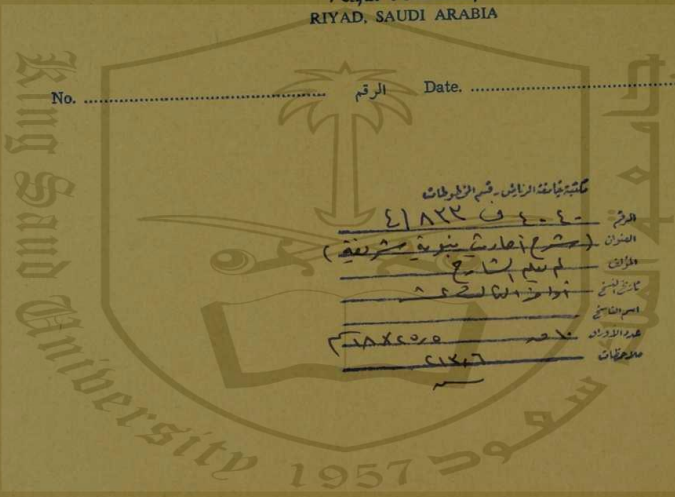 RIYAD, SAUDI ARABIA
No. الرقم Date.
مكتبة جامعة الرياض - قسم المخطوطات
الرقم ٤٠٤٠ ف ٨٣٣ / ٤
العنوان (شرح أحاديث نبوية شريفة)
المؤلف لم يعلم الشارح
تاريخ النسخ أواخر الثالث عشر
اسم الناسخ
عدد الأوراق ١٠ ق ٢٥٫٥ × ١٨ م
ملاحظات ٢١٣٫٦
King Saud University
جامعة الملك سعود
1957